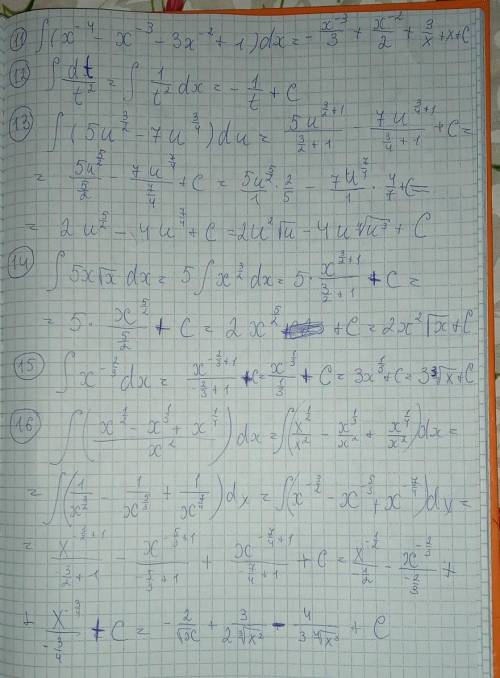 11) ∫(x^-4 - x^-3 - 3x^-2 + 1)dx = - x^-3/3 + x^-2/2 + 3/x + x + C
12) ∫ dt/t^2 = ∫ 1/t^2 dx = - 1/t + C
13) ∫(5u^3/2 - 7u^3/4)du = 5u^(3/2+1)/(3/2+1) - 7u^(3/4+1)/(3/4+1) + C =
= 5u^5/2/(5/2) - 7u^7/4/(7/4) + C = 5u^5/2/1 · 2/5 - 7u^7/4/1 · 4/7 + C =
= 2u^5/2 - 4u^7/4 + C = 2u^2 √u - 4u ∜u^3 + C
14) ∫ 5x√x dx = 5∫ x^3/2 dx = 5 · x^(3/2+1)/(3/2+1) + C =
= 5 · x^5/2/(5/2) + C = 2x^5/2 + C = 2x^2 √x + C
15) ∫ x^-2/3 dx = x^(-2/3+1)/(-2/3+1) + C = x^1/3/(1/3) + C = 3x^1/3 + C = 3∛x + C
16) ∫((x^1/2 - x^1/3 + x^1/4)/x^2)dx = ∫(x^1/2/x^2 - x^1/3/x^2 + x^1/4/x^2)dx =
= ∫(1/x^3/2 - 1/x^5/3 + 1/x^7/4)dx = ∫(x^-3/2 - x^-5/3 + x^-7/4)dx =
= x^(-3/2+1)/(-3/2+1) - x^(-5/3+1)/(-5/3+1) + x^(-7/4+1)/(-7/4+1) + C = x^-1/2/(-1/2) - x^-2/3/(-2/3) +
+ x^-3/4/(-3/4) + C = - 2/√x + 3/(2∛x^2) - 4/(3∜x^3) + C